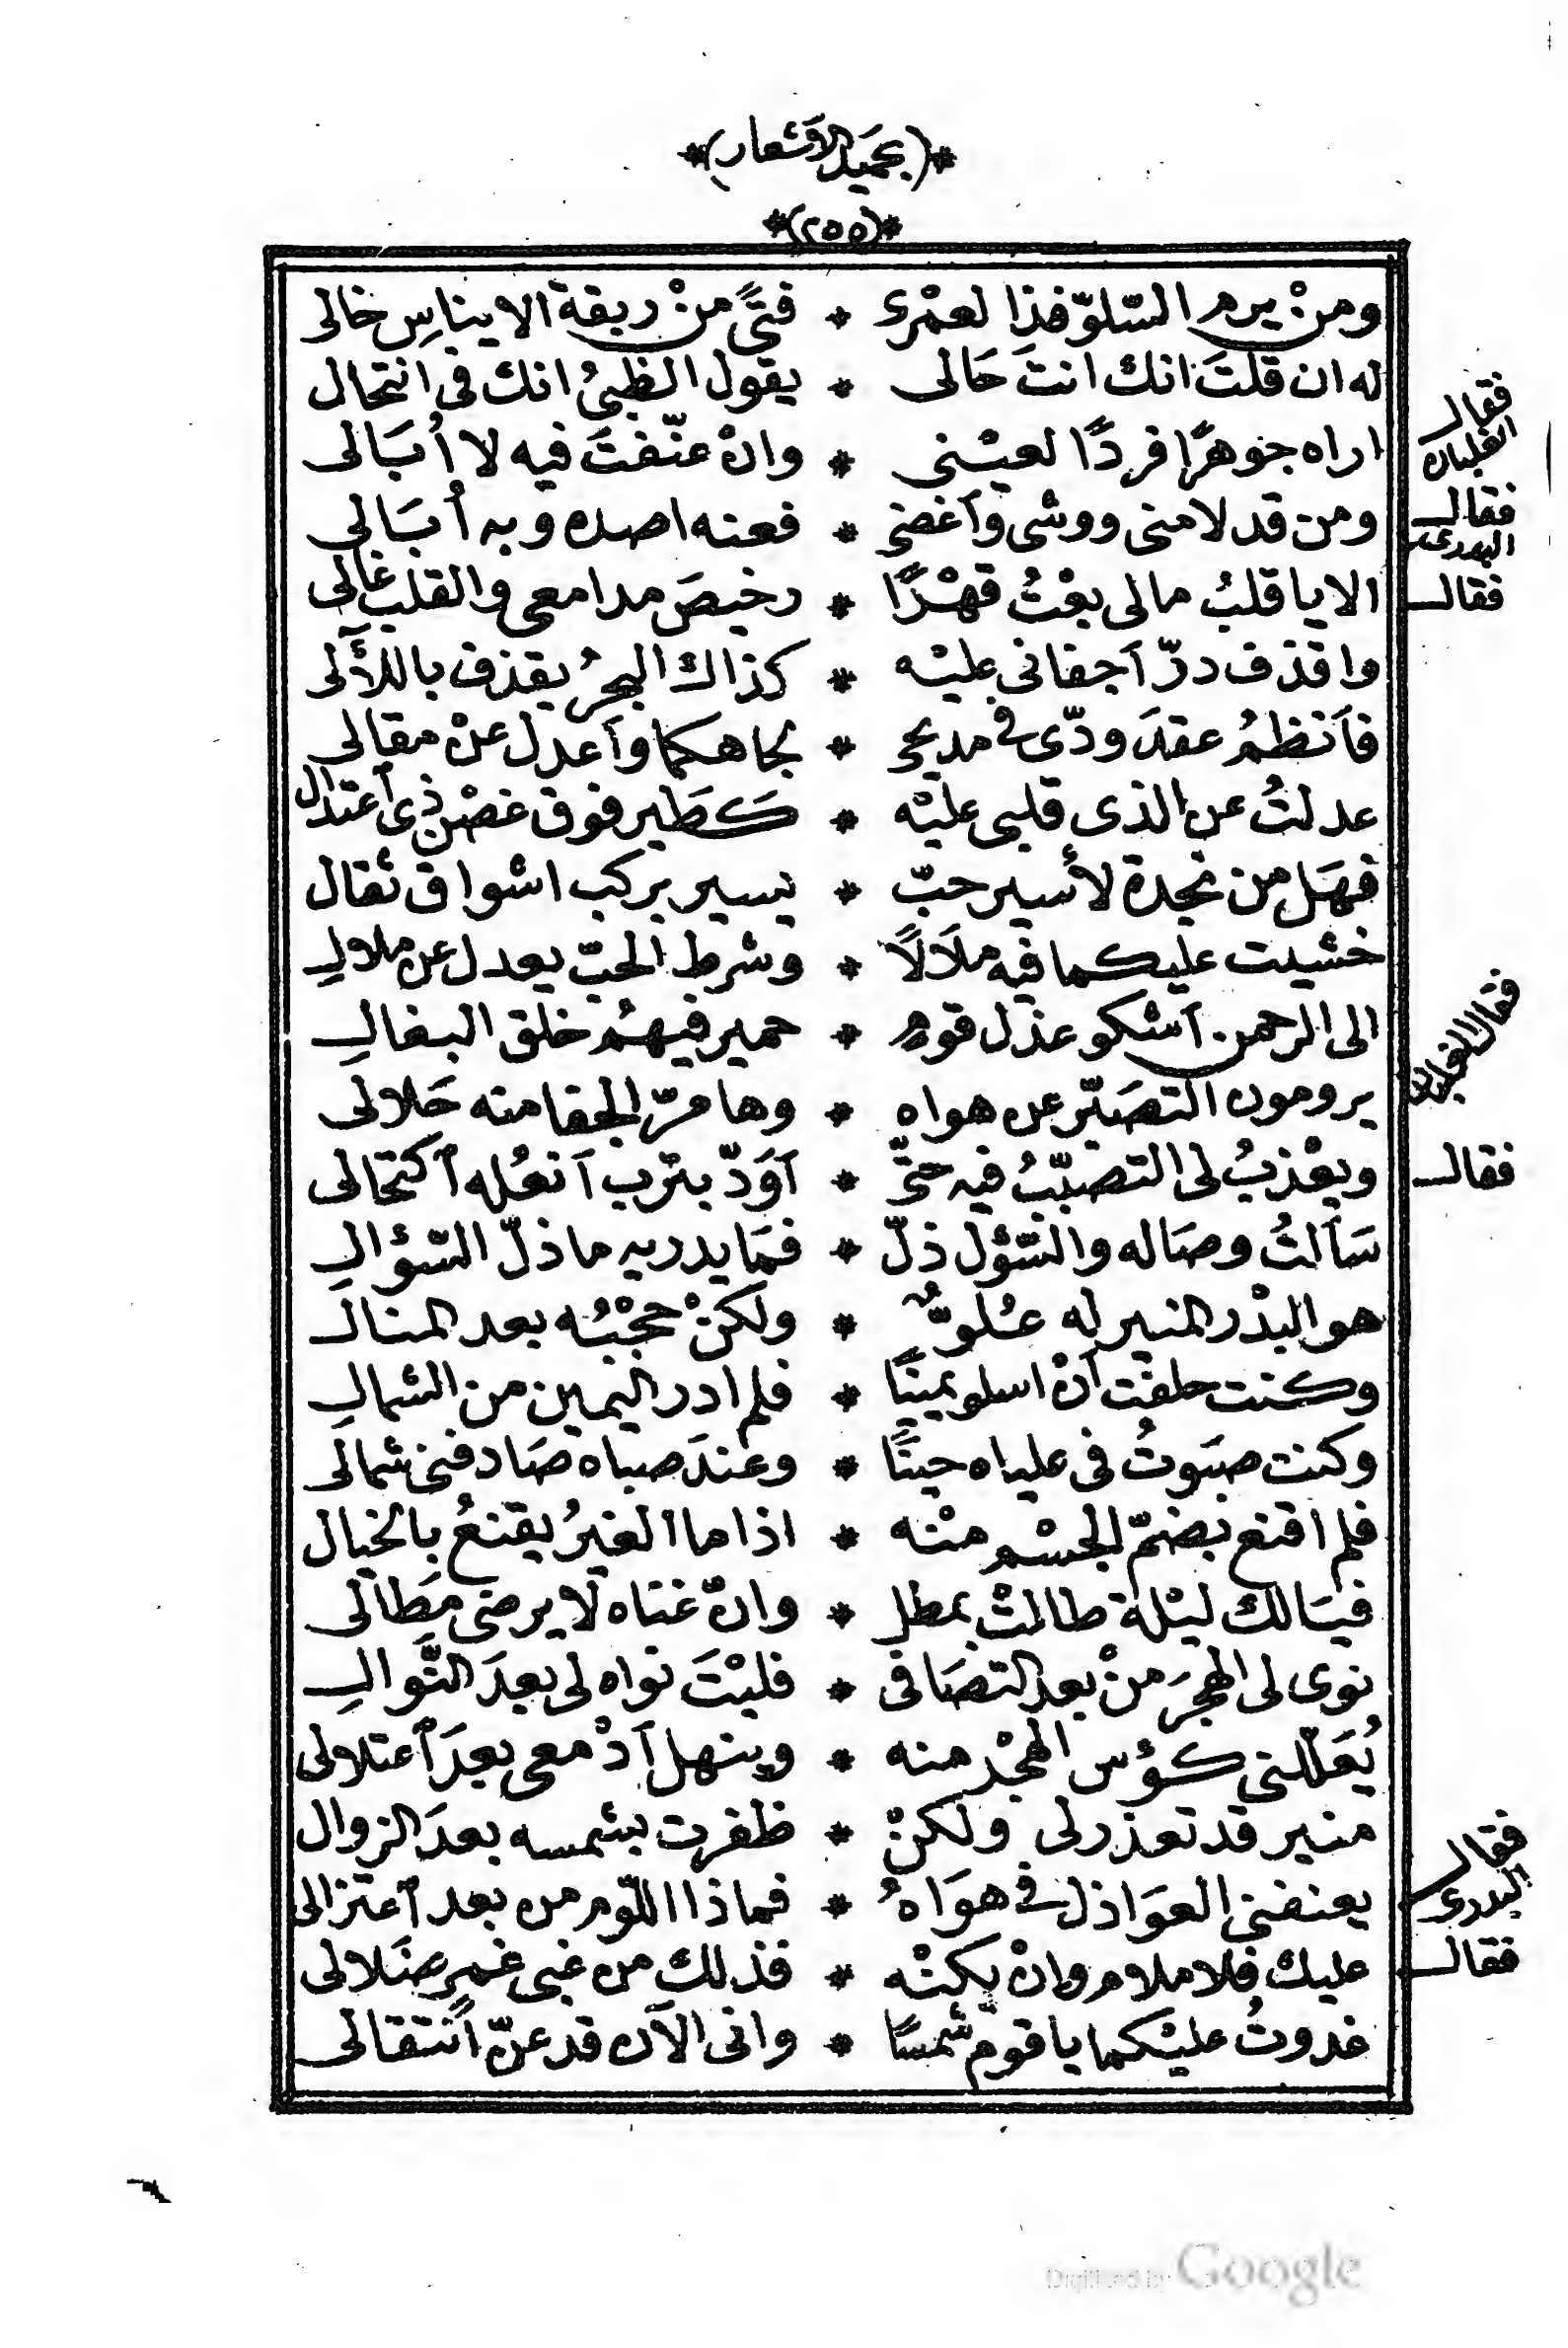 *(بحميد الاشعار)*
*(٢٥٥)*
ومنْ يرم السّلوّ فذا لعمْرى * فتىً منْ ربقة الايناسِ خالى
له ان قلتَ انك انتَ حَالى * يقول الظبىُ انك فى انتحال
فقال
اراه جوهرًا فردًا لعيْنى * وانْ عنّفتَ فيه لا اُبَالى
ومن قد لامنى ووشى وأغضى * فعنه اصده وبه اُبَالى
فقال البدرى
الا يا قلبُ مالى بعْتُ قهْرًا * رخيصَ مدامعى والقلب غالى
فقال
واقذف درّ أجفانى عليْه * كذاك البحرُ يقذف باللآلى
فأنظمُ عقدَ ودّى فى مديحى * بجاهكما وأعدل عنْ مقالى
عدلتُ عن الذى قلبى عليْه * كَطَير فوق غصْن ذى أعتدال
فهَل من نجدة لأسير حبّ * يسير بركب اشواق ثقال
خشيت عليكما فيه ملَالًا * وشرط الحبّ يعدل عن ملال
الى الرحمن أشكو عذل قوم * حمير فيهمُ خلق البغال
يرومون التصَبّر عن هواه * وها مرّ الجفا منه حَلالى
ويعْذبُ لى التصبّبُ فيه حتّى * أوَدّ بتْرب أنعُله أكتحالى
فقال
سَألتُ وصَاله والسّؤل ذلّ * فمَا يدريه ما ذلّ السّؤال
هو البدْر المنير له عُلوٌّ * ولكنْ حجْبُه بعد المنال
وكنت حلفت أنْ اسلو يمينًا * فلم ادر اليمين من الشمال
وكنت صبَوتُ فى علياه حينًا * وعندَ صباه صَادفنى شمالى
فلم اقنع بضمّ الجسْم منْه * اذا ما الغيرُ يقنعُ بالخيال
فيَالك ليْلة طالتْ بمطل * وانّ غناه لا يرضى مَطالى
نوى لى الهجرَ منْ بعد التصَافى * فليْتَ نواه لى بعدَ النّوال
يُعَلّلنى كؤس الهجْر منه * وينهل أدْمعى بعدَ أعتلالى
منير قد تعذر لى ولكنْ * ظفرت بشمسه بعدَ الزوال
يعنفنى العوَاذل فى هوَاهُ * فماذا اللّوم من بعد أعتزالى
فقال البدرى
عليك فلا ملام وانْ بكتْه * فذلك من غبى غمرٍ ضَلالى
فقال
غدوتُ عليْكما يا قومّ شمسًا * وانى الآن قد عنّ أنتقالى